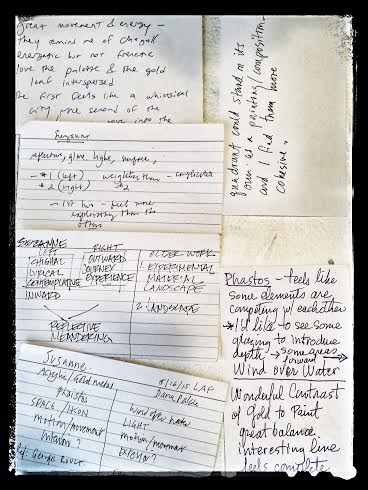 great movement & energy -
they remind me of Chagall
energetic but not frenetic
love the palette & the gold
leaf interspersed
The first feels like a whimsical
city the second of the
into the
quadrant could stand on its
own as a painting/composition
and I find them more
cohesive.
Suzanne
reflective, glow, light, surface,
#1 (left) weightier than - complicated
#2 (right) #2
- 1st two - feel more
exploratory than the
others
SUZANNE
LEFT
CHAGALL
LYRICAL
CONTEMPLATIVE
INWARD
RIGHT
OUTWARD
JOURNEY
EXPERIENCE
OLDER WORK
EXPERIMENTAL
MATERIAL
LANDSCAPE
2 LANDSCAPE
REFLECTIVE
MEANDERING
Phastos - feels like
some elements are
competing w/ each other
*I'd like to see some
glazing to introduce
depth → some areas
forward
Wind over Water
Wonderful Contrast
of Gold to Paint
great balance
interesting line
feels complete
Susanne
5/16/15 LAP
Acrylic/gold metal
PHASTOS
SPACE / ICON
motion/movement
interior?
wind over water
LIGHT
motion/movement
exterior?